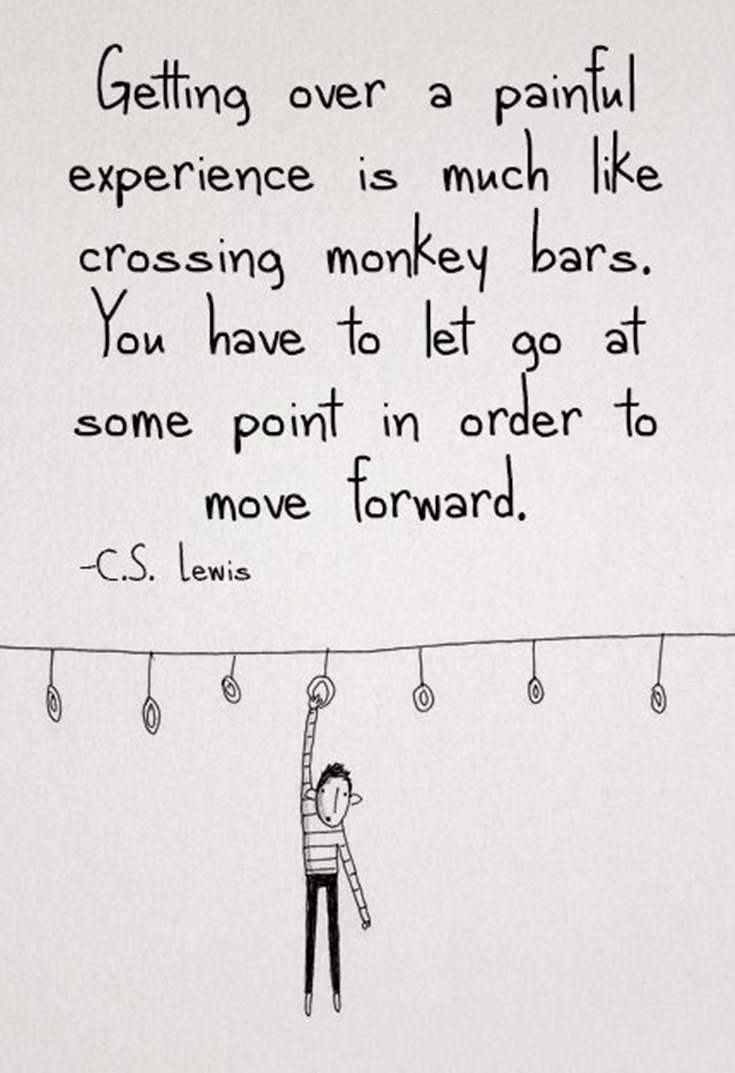 Getting over a painful
experience is much like
crossing monkey bars.
You have to let go at
some point in order to
move forward.
-C.S. Lewis